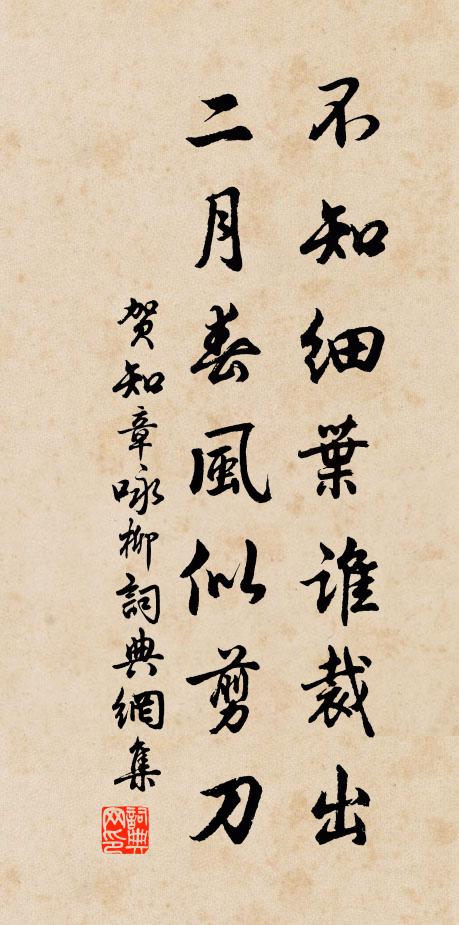 不知細葉誰裁出
二月春風似剪刀
賀知章咏柳詞典網集
詞典网印